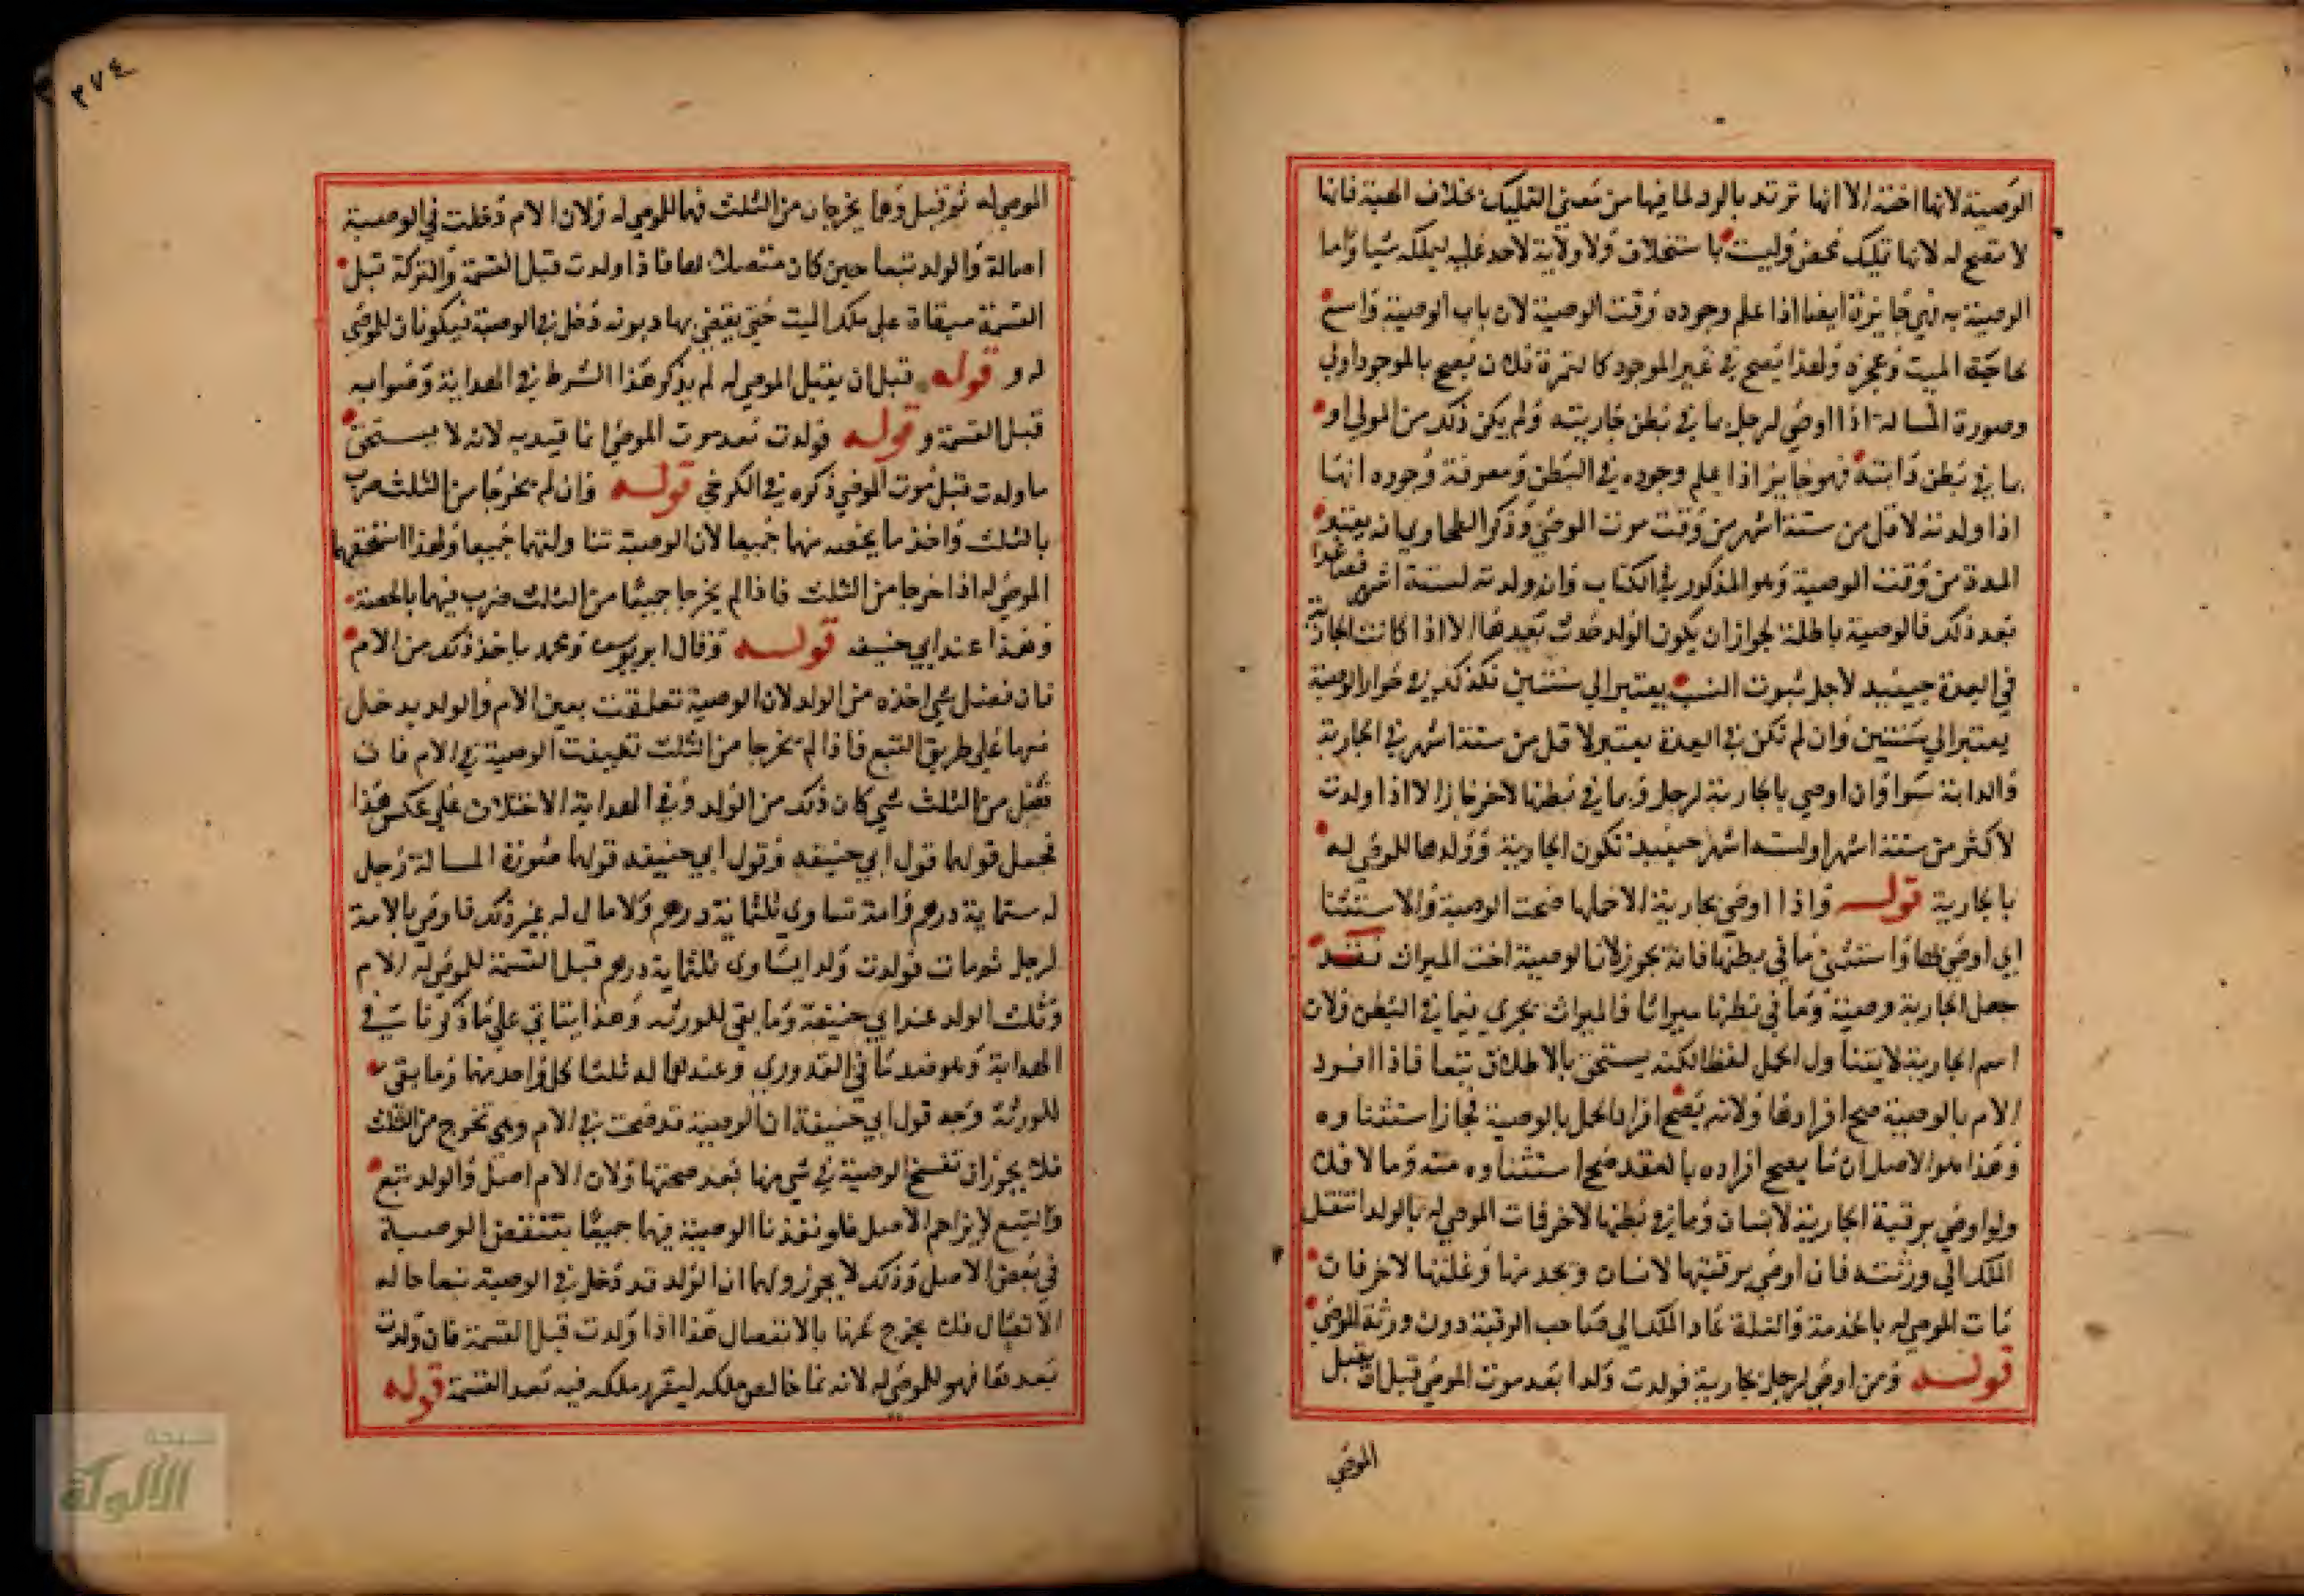 الوصية لانها اخته الا انها ترتد بالرد لما فيها من معنى التمليك بخلاف الهبة فانها
لا تصح له لانها تمليك محض وليست باستخلاف ولا ولاية لاحد عليه ليملكه شيا واما
الوصية به فهي جايزة ايضا اذا علم وجوده وقت الوصية لان باب الوصية واسع
لحاجة الميت وعجزه ولهذا يصح في غير الموجود كالثمرة فلان يصح بالموجود اولى
وصورة المسالة اذا اوصى لرجل بما في بطن جاريته ولم يكن ذلك من المولى او
بما في بطن دابته فهو جايز اذا علم وجوده في البطن ومعرفة وجوده انها
اذا ولدته لاقل من ستة اشهر من وقت موت الموصي وذكر الطحاوي انه يعتبر
المدة من وقت الوصية وهو المذكور في الكتاب وان ولدته لستة اشهر فصاعدا
بعد ذلك فالوصية باطلة لجواز ان يكون الولد حدث بعدها الا اذا كانت الجارية
في العدة حينيد لاجل ثبوت النسب يعتبر الى سنتين فكذلك في جواز الوصية
يعتبر الى سنتين وان لم تكن في العدة يعتبر لاقل من ستة اشهر في الجارية
والدابة سوا وان اوصى بالجارية لرجل وبما في بطنها لاخر جاز الا اذا ولدت
لاكثر من ستة اشهر او لستة اشهر حينيد تكون الجارية وولدها للموصى له
بالجارية قوله واذا اوصى بجارية الا حملها صحت الوصية والاستثنا
اي اوصى بها واستثنى ما في بطنها فانه يجوز لان الوصية اخت الميراث فقد
جعل الجارية وصية وما في بطنها ميراثا والميراث يجري فيما في البطن ولان
اسم الجارية لا يتناول الحمل لفظا لكنه يستحق بالاطلاق تبعا فاذا افرد
الام بالوصية صح افرادها ولانه يصح افراد الحمل بالوصية فجاز استثناوه
وهذا هو الاصل ان ما يصح افراده بالعقد صح استثناوه منه وما لا فلا
ولو اوصى برقبة الجارية لانسان وبما في بطنها لاخر فمات الموصى له بالولد انتقل
الملك الى ورثته فان اوصى برقبتها لانسان وبخدمتها وغلتها لاخر فان
مات الموصى له بالخدمة والغلة عاد الملك الى صاحب الرقبة دون ورثة الموصى
قوله ومن اوصى لرجل بجارية فولدت ولدا بعد موت الموصي قبل ان يقبل
الموصى
٢٧٤
الموصى له ثم قبل وهما يخرجان من الثلث فهما للموصى له ولان الام دخلت في الوصية
اصالة والولد تبعا حين كان متصلا بها فاذا ولدت قبل القسمة والتركة قبل
القسمة مبقاة على ملك الميت حتى يقضى بها ديونه دخل في الوصية فيكونان للموصى
له و قوله قبل ان يقبل الموصى له لم يذكر هذا الشرط في الهداية وصوابه
قبل القسمة و قوله فولدت بعد موت الموصي انما قيد به لانه لا يستحق
ما ولدت قبل موت الموصي ذكره في الكرخي قوله وان لم يخرجا من الثلث ضرب
بالثلث واخذ ما يخصه منهما جميعا لان الوصية تناولتهما جميعا ولهذا استحقهما
الموصى له اذا خرجا من الثلث فاذا لم يخرجا جميعا من الثلث ضرب فيهما بالحصة
وهذا عند ابي حنيفه قوله وقال ابو يوسف ومحمد ياخذ ذلك من الام
فان فضل شي اخذه من الولد لان الوصية تعلقت بعين الام والولد يدخل
فيها على طريق التبع فاذا لم يخرجا من الثلث تعينت الوصية في الام فان
فضل من الثلث شي كان ذلك من الولد وفي الهداية الاختلاف على عكس هذا
فجعل قولهما قول ابي حنيفه وقول ابي حنيفه قولهما صورة المسالة رجل
له ستماية درهم وامة تساوي ثلثماية درهم ولا مال له غير ذلك فاوصى بالامة
لرجل ثم مات فولدت ولدا يساوي ثلثماية درهم قبل القسمة للموصى له الام
وثلث الولد عند ابي حنيفة وما بقي للورثه وهذا يتاتى على ما ذكرنا في
الهداية وهو ضد ما في القدوري وعندهما له ثلثا كل واحد منهما وما بقي
للورثة وجه قول ابي حنيفة ان الوصية قد صحت في الام وهي تخرج من الثلث
فلا يجوز ان تفسخ الوصية في شي منها بعد صحتها ولان الام اصل والولد تبع
والتبع لا يزاحم الاصل فلو نفذنا الوصية فيهما جميعا تنتقض الوصية
في بعض الاصل وذلك لا يجوز ولهما ان الولد قد دخل في الوصية تبعا حاله
الاتصال فلا يخرج عنها بالانفصال هذا اذا ولدت قبل القسمة فان ولدت
بعدها فهو للموصى له لانه نما خالص ملكه ليتقرر ملكه فيه بعد القسمة قوله
شبكة
الألوكة